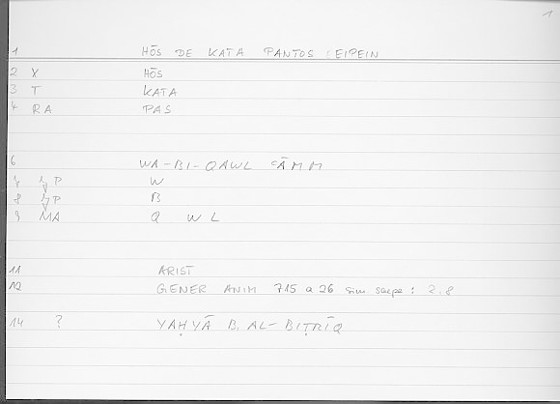 1
1 HŌS DE KATA PANTOS : EIPEIN
2 X HŌS
3 T KATA
4 RA PAS
6 WA-BI-QAWL ʿĀMM
P W
8 P B
9 MA Q W L
11 ARIST
12 GENER ANIM 715 a 26 sim saepe : 2.8
14 ? YAḤYĀ B. AL-BIṬRĪQ